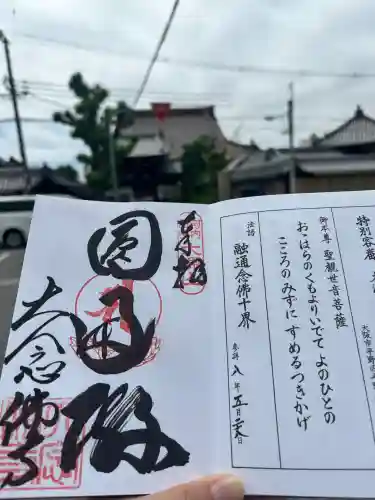 特別客殿
大阪市平野
御本尊 聖観世音菩薩
おゝはらのくもよりいでて よのひとの
こころのみずに すめるつきかげ
融通念佛十界
参拝 八年 五月
奉拝
圓通殿
大念佛寺